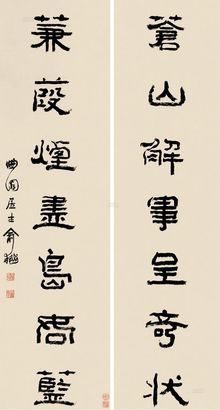 蒼山解事呈奇狀
蒹葭煙盡島藍
曲園居士俞樾